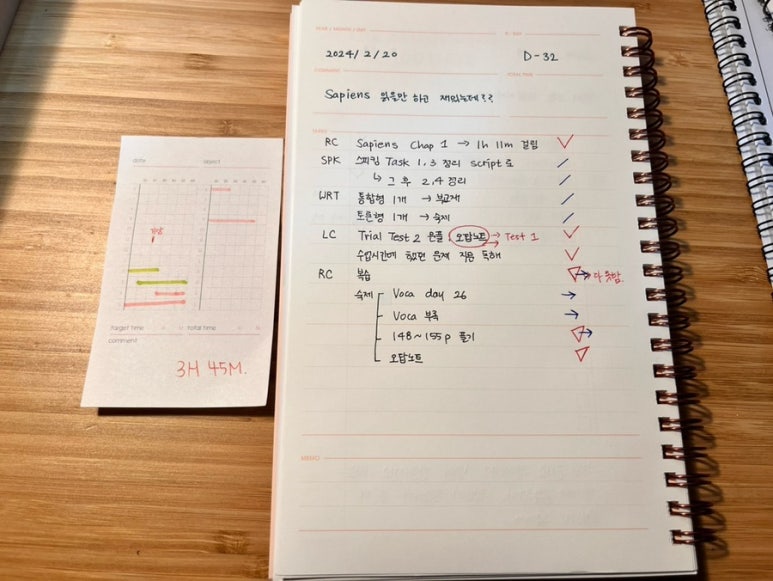 date object
기상
target time total time
comment
3H 45M.
YEAR / MONTH / DAY D-DAY
2024/2/20 D-32
COMMENT TOTAL TIME
Sapiens 읽을만 하고 재밌는데??
TASKS
RC Sapiens Chap 1 → 1h 11m 걸림
SPK 스피킹 Task 1, 3 정리 script 요
↳ 그 후 2, 4 정리
WRT 통합형 1개 → 부교재
토론형 1개 → 숙제
LC Trial Test 2 온풀, 오답노트 → Test 1
수업시간에 했던 문제 지문 독해
RC 복습 → 다 못함.
숙제 Voca day 26
Voca 부록
148~155p 풀기
오답노트
MEMO